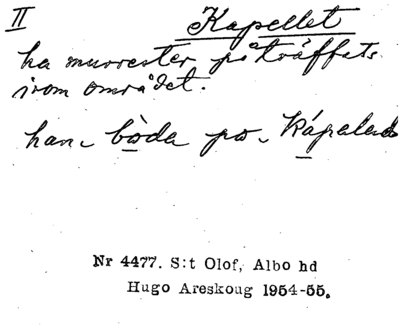 II Kapellet
ha murrester påträffats
inom området.
han bòda po Kápeled
Nr 4477. S:t Olof, Albo hd
Hugo Areskoug 1954-55.